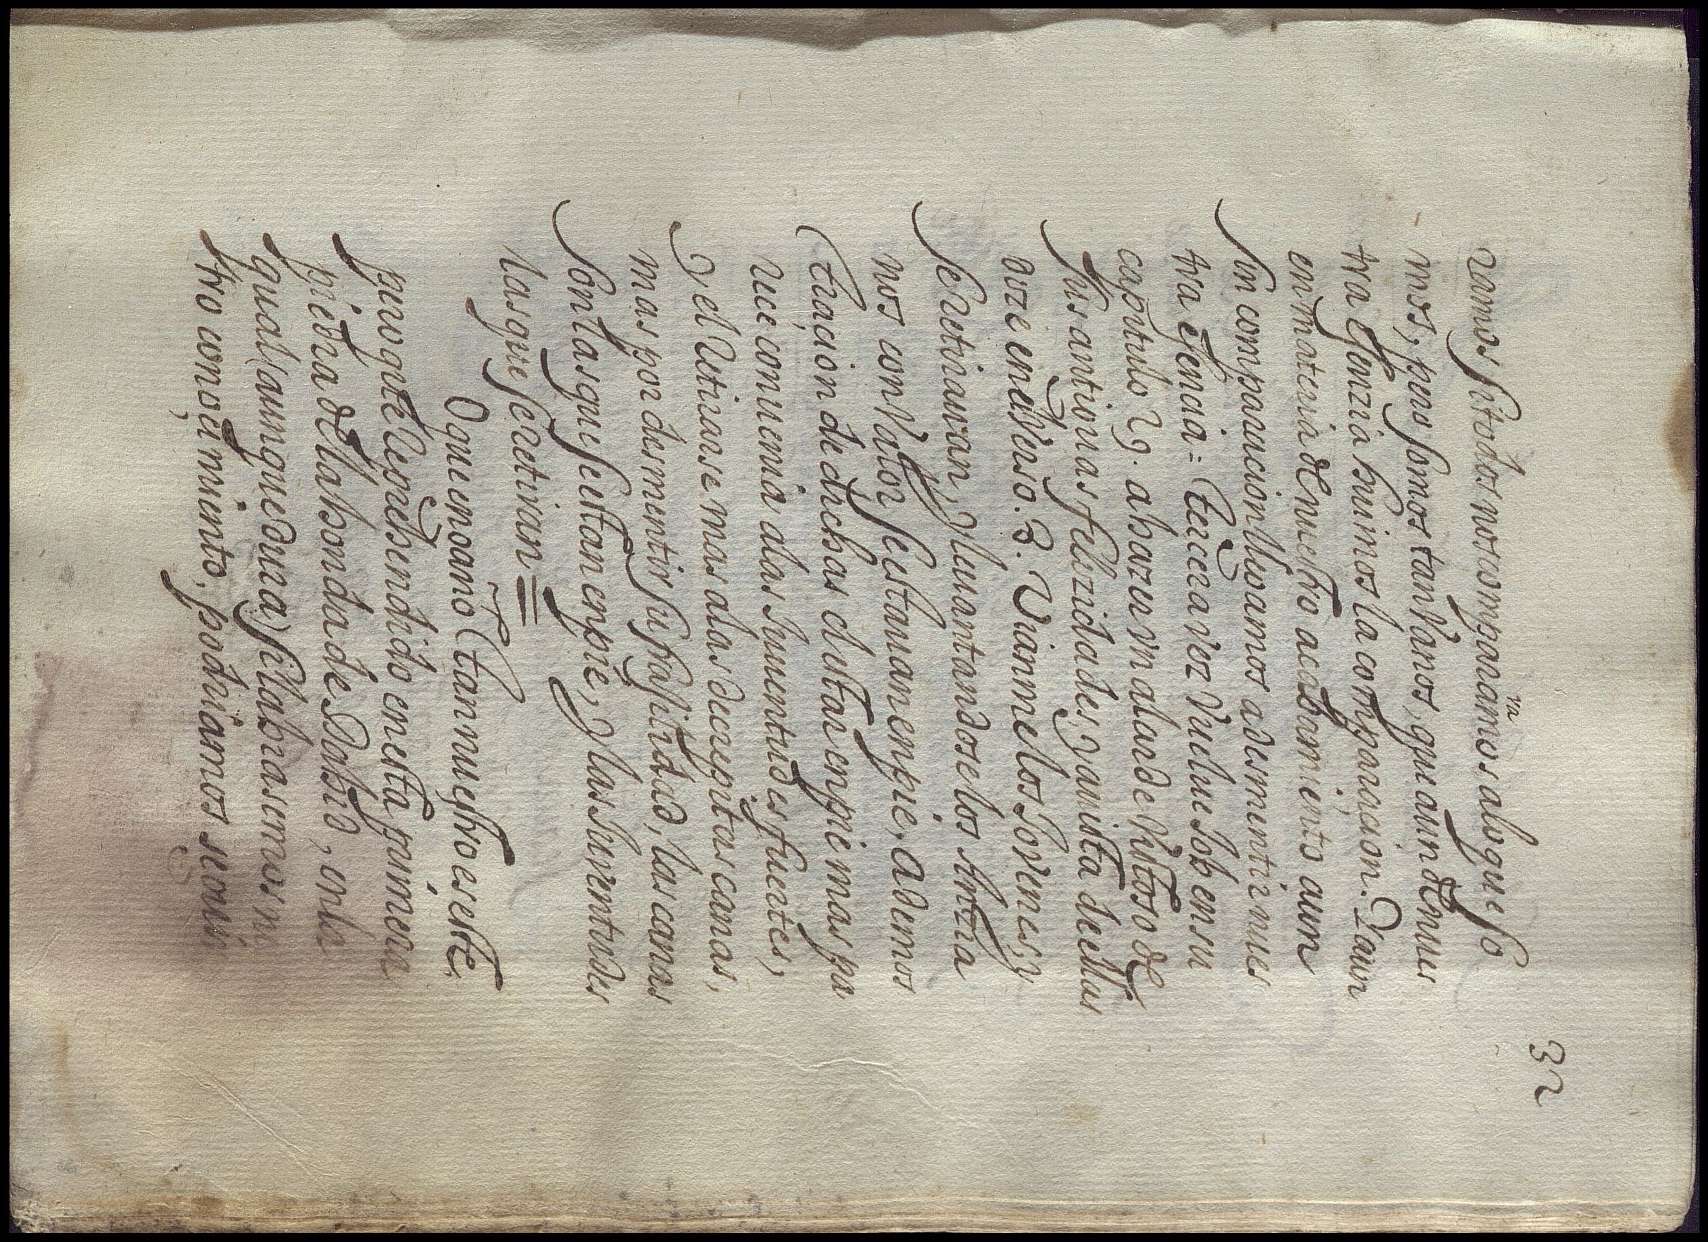 32
ramos si todos nos comparamos a lo que so
mos, pero somos tan vanos, que aun de nues
tra esenzia huimos la comparaçion. Y aun
en materia de nuestro acabamiento aun
sin comparaçion vsamos a desmentir nues
tra esençia = terçera vez vuelue Job en su
capitulo 29. a hazer vn alarde vistoso de
sus antiguas felizidades y a vista de ellas
dize en el verso. 8. Vianme los Jovenes, y
se retirauan, y leuantandose los Ançia
nos con valor se estauan en pie, ademos
traçion de dichas el estar en pie mas pa
reçe conuenia a las Juuentudes fuertes,
y el retirarse mas a las decrepitas canas,
mas por desmentir su fragilidad, las canas
son las que se estan en pie, y las Juuentudes
las que se retiran =
O que engaño tan nuestro es este,
pero que reprehendido en esta primera
piedra de la honda de Dabid, en la
qual (aunque dura) si labrasemos nu
stro conoçimiento, podriamos seguir